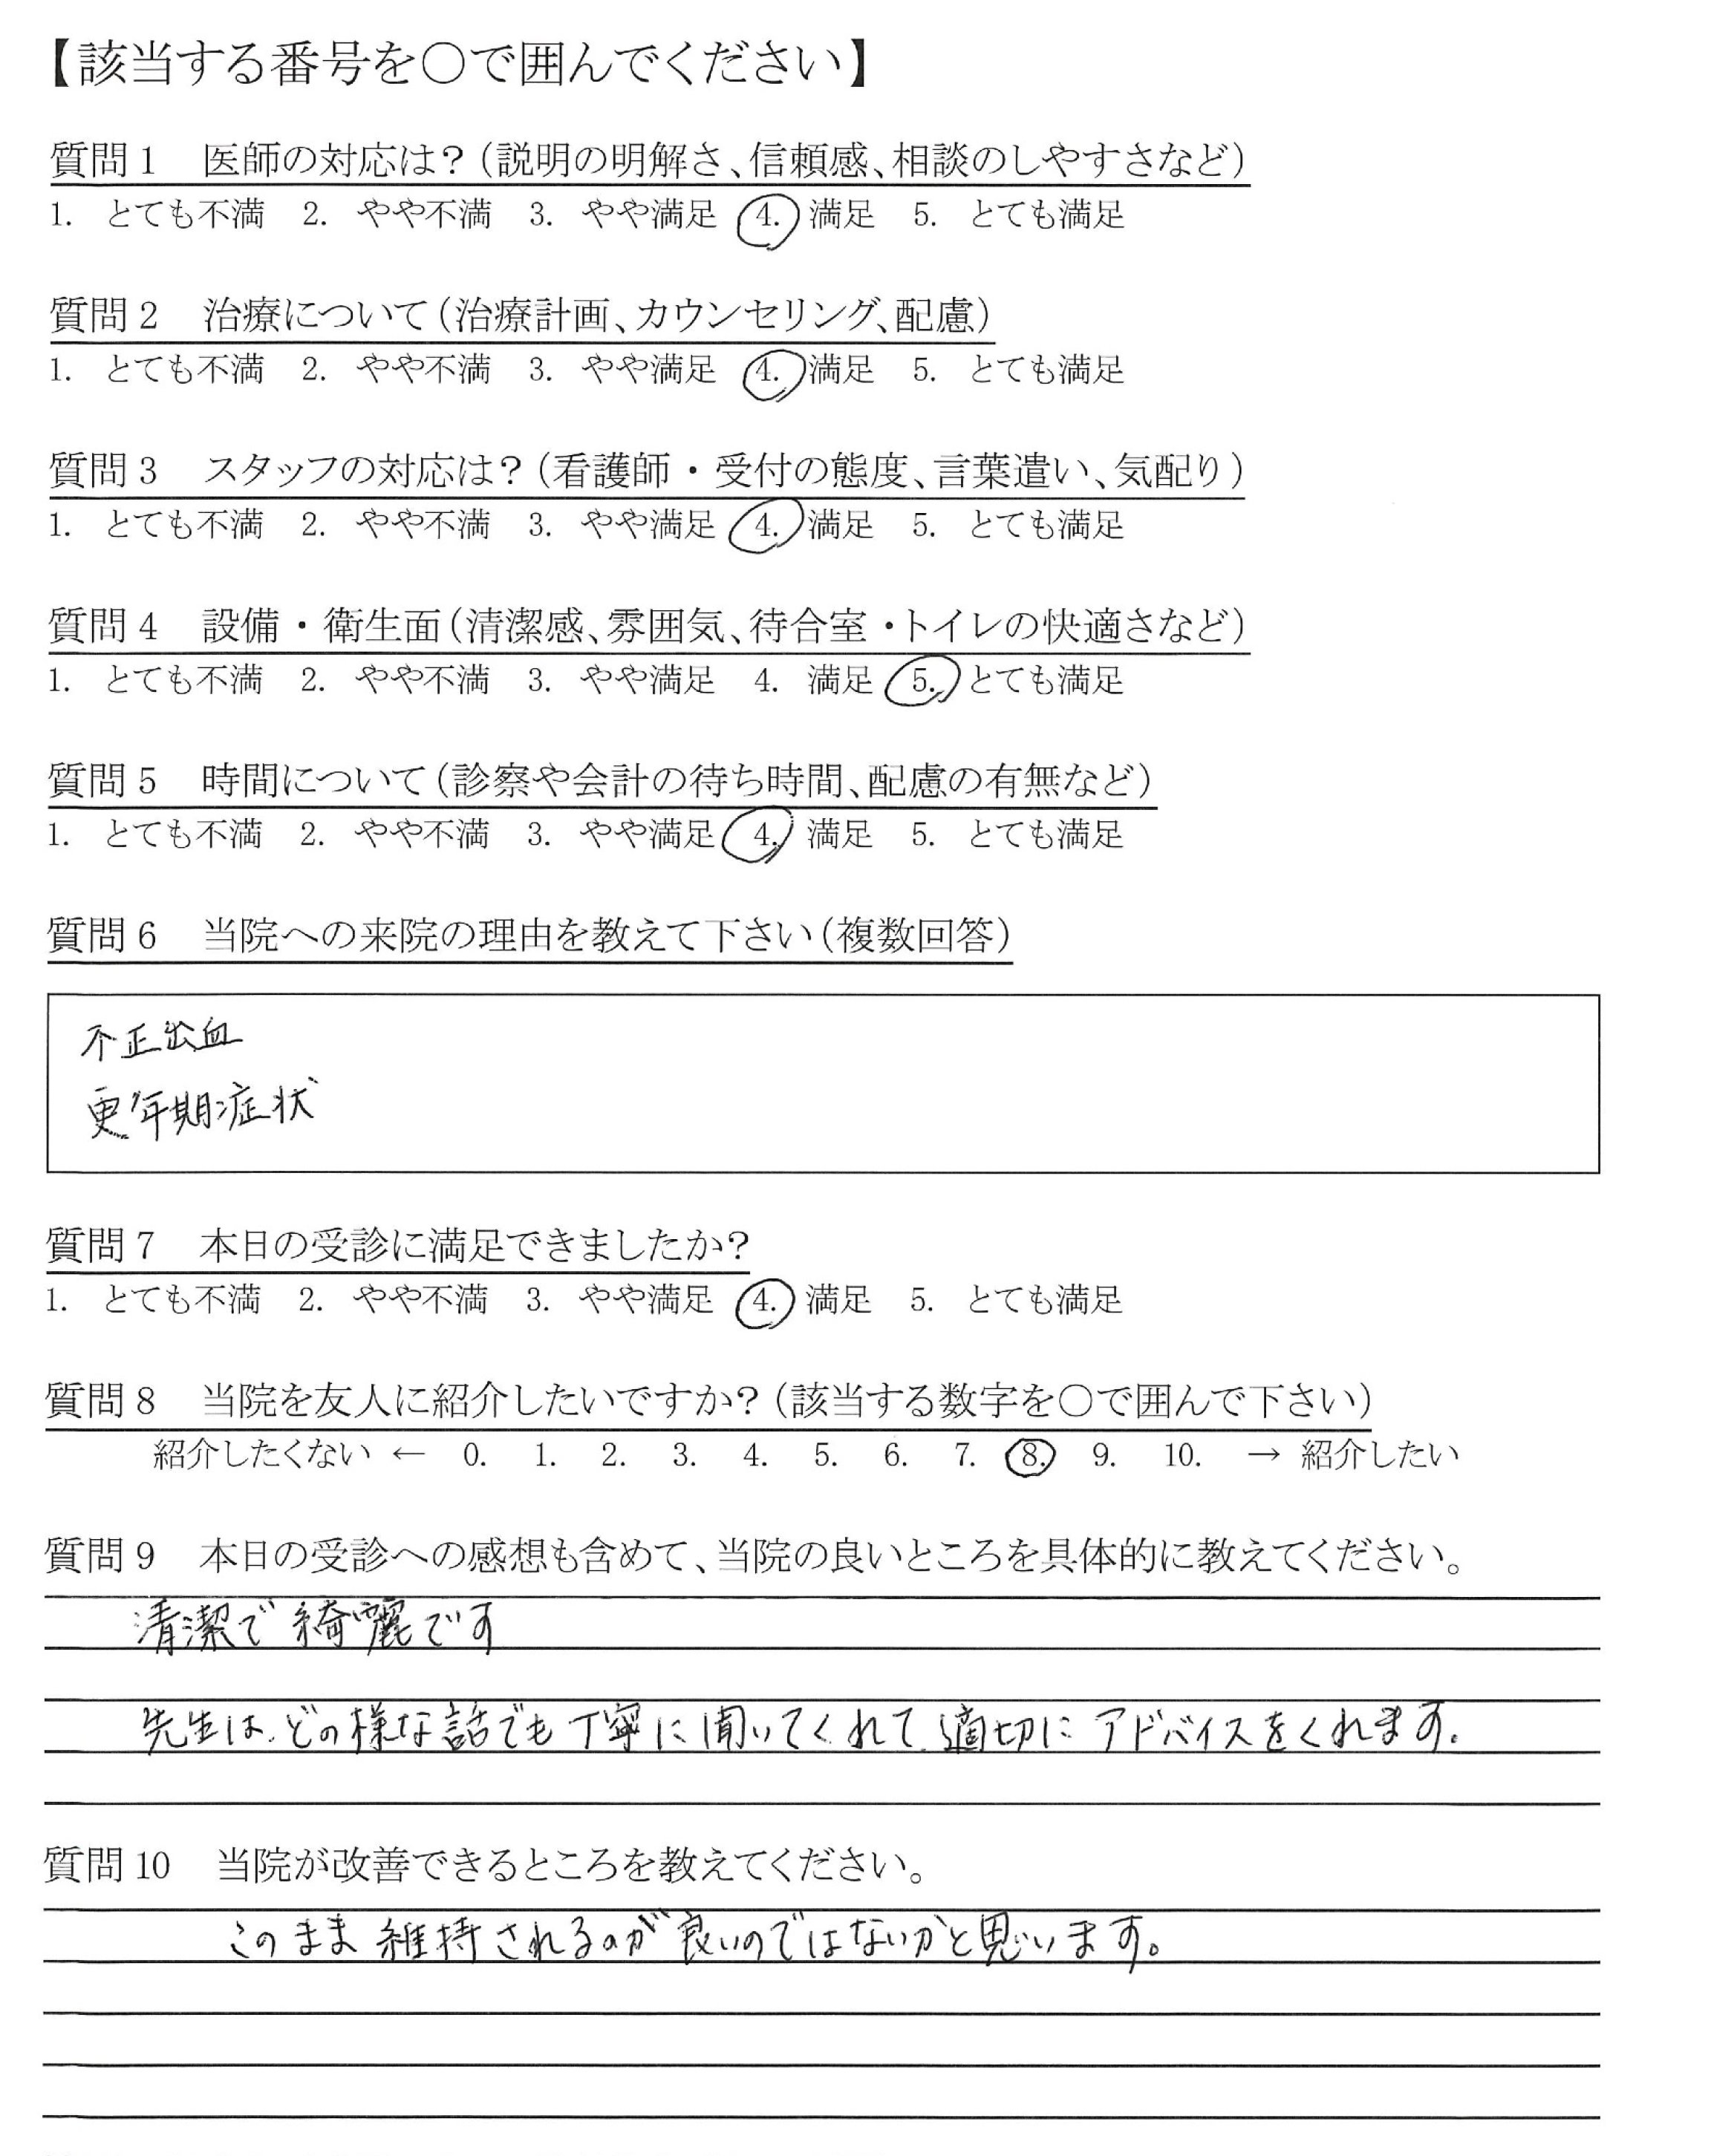 【該当する番号を○で囲んでください】
質問1　医師の対応は？（説明の明解さ、信頼感、相談のしやすさなど）
1. とても不満　2. やや不満　3. やや満足　4. 満足　5. とても満足
質問2　治療について（治療計画、カウンセリング、配慮）
1. とても不満　2. やや不満　3. やや満足　4. 満足　5. とても満足
質問3　スタッフの対応は？（看護師・受付の態度、言葉遣い、気配り）
1. とても不満　2. やや不満　3. やや満足　4. 満足　5. とても満足
質問4　設備・衛生面（清潔感、雰囲気、待合室・トイレの快適さなど）
1. とても不満　2. やや不満　3. やや満足　4. 満足　5. とても満足
質問5　時間について（診察や会計の待ち時間、配慮の有無など）
1. とても不満　2. やや不満　3. やや満足　4. 満足　5. とても満足
質問6　当院への来院の理由を教えて下さい（複数回答）
不正出血
更年期症状
質問7　本日の受診に満足できましたか？
1. とても不満　2. やや不満　3. やや満足　4. 満足　5. とても満足
質問8　当院を友人に紹介したいですか？（該当する数字を○で囲んで下さい）
紹介したくない ← 0. 1. 2. 3. 4. 5. 6. 7. 8. 9. 10. → 紹介したい
質問9　本日の受診への感想も含めて、当院の良いところを具体的に教えてください。
清潔で綺麗です
先生は、どの様な話でも丁寧に聞いてくれて、適切にアドバイスをくれます。
質問10　当院が改善できるところを教えてください。
このまま維持されるのが良いのではないかと思います。